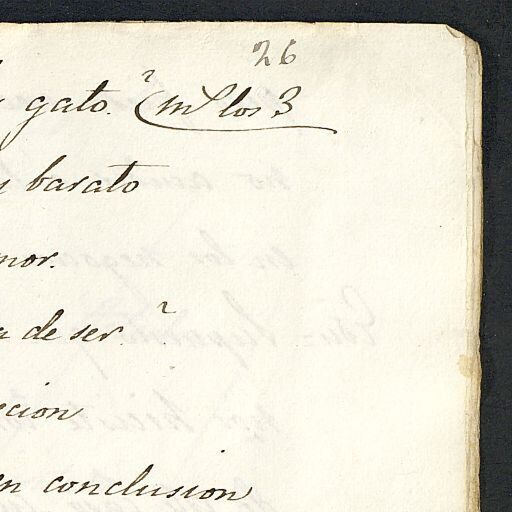 26
gato.? los 3
barato
mor.
de ser.?
ecion
en conclusion